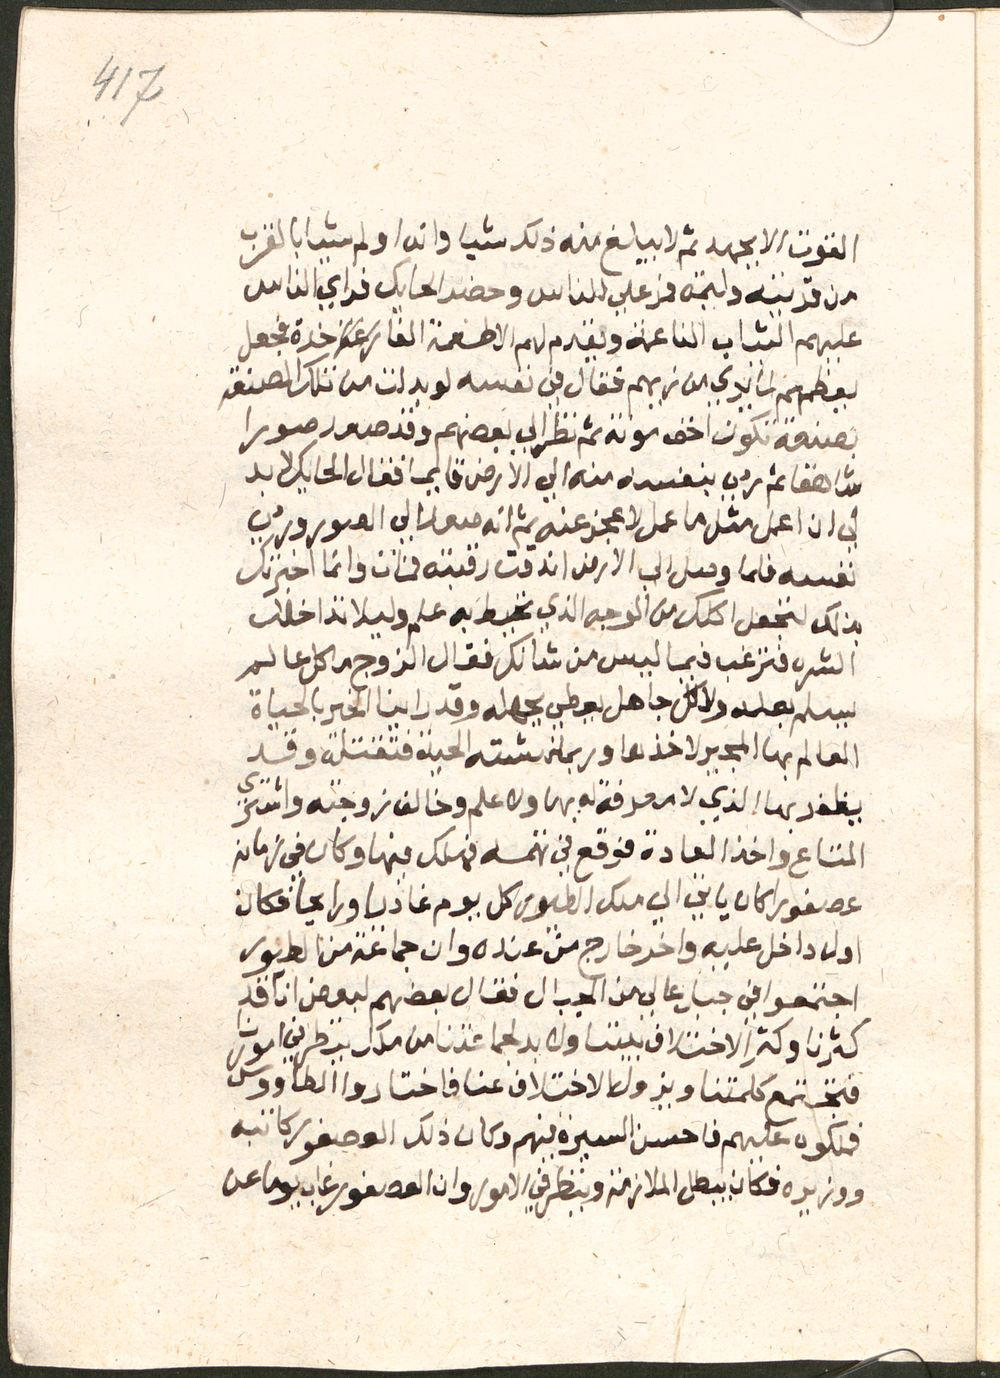 417
القوت الا بجهد ثم لا يبالغ منه ذلك شيا وانه اولم شيا بالقرب
من قريته وليمة فزعلي للناس وحضر الحايك فراي الناس
عليهم الثياب الناعمة ويقدم لهم الاطعمة الفاخرة فجعل
يعظمهم من زيهم فقال في نفسه لو بدلت من تلك الصنعة
بصنعة تكون اخف مونة ثم نظر الي بعضهم وقد صعد صورا
شاهقا ثم رمي بنفسه منه الي الارض قايما فقال الحايك لا بد
لي ان اعمل مثل ما عمل لا عجز عنه ثم انه صعد الي الصور ورمي
نفسه فلما وصل الي الارض اندقت رقبته فمات وانما اخبرتك
بذلك لتجعل اكلك من الوجه الذي تحيط به علم وليلا تداخلك
الشره فترغب فيما ليس من شانك فقال الزوج ما كل عالم
يسلم بعلمه ولا كل جاهل يعطي بجهله وقد راينا الخبير بالحياة
العالم بها المجير لاخذها وربما نهشته الحية فتقتله وقد
يظفر بها الذي لا معرفة له بها ولا علم وخالف زوجته واشتري
المتاع واخذ العادة فوقع في تهمسه فهلك فيها وكان في زمانه
عصفورا كان ياتي الي ملك الطيور كل يوم غاديا ورايحا فكان
اول داخل عليه واخر خارج من عنده وان جماعة من الطيور
اجتمعوا في جبل عالي من الجبال فقال بعضهم لبعض انا قد
كثرنا وكثر الاختلاف بيننا ولا بد لجماعتنا من ملك ينظر في امورنا
فتجتمع كلمتنا ويزول الاختلاف عنا فاختاروا الطاووس
فملكوه عليهم فاحسن السيرة فيهم وكان ذلك العصفور كاتبه
ووزيره فكان يبطل الملازمة وينظر في الامور وان العصفور غاب يوما عن